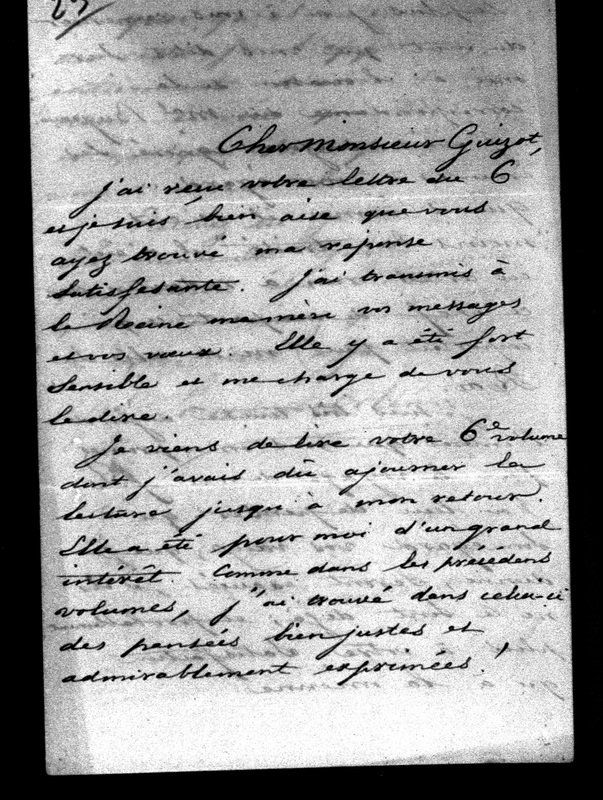 23
Cher Monsieur Guizot,
J'ai reçu votre lettre du 6
et je suis bien aise que vous
ayez trouvé ma réponse
satisfesante. J'ai transmis à
la Reine ma mère vos messages
et vos vœux. Elle y a été fort
sensible et me charge de vous
le dire.
Je viens de lire votre 6e volume
dont j'avais dû ajourner la
lecture jusqu'à mon retour.
Elle a été pour moi d'un grand
intérêt. Comme dans les précédens
volumes, j'ai trouvé dans celui-ci
des pensées bien justes et
admirablement exprimées.